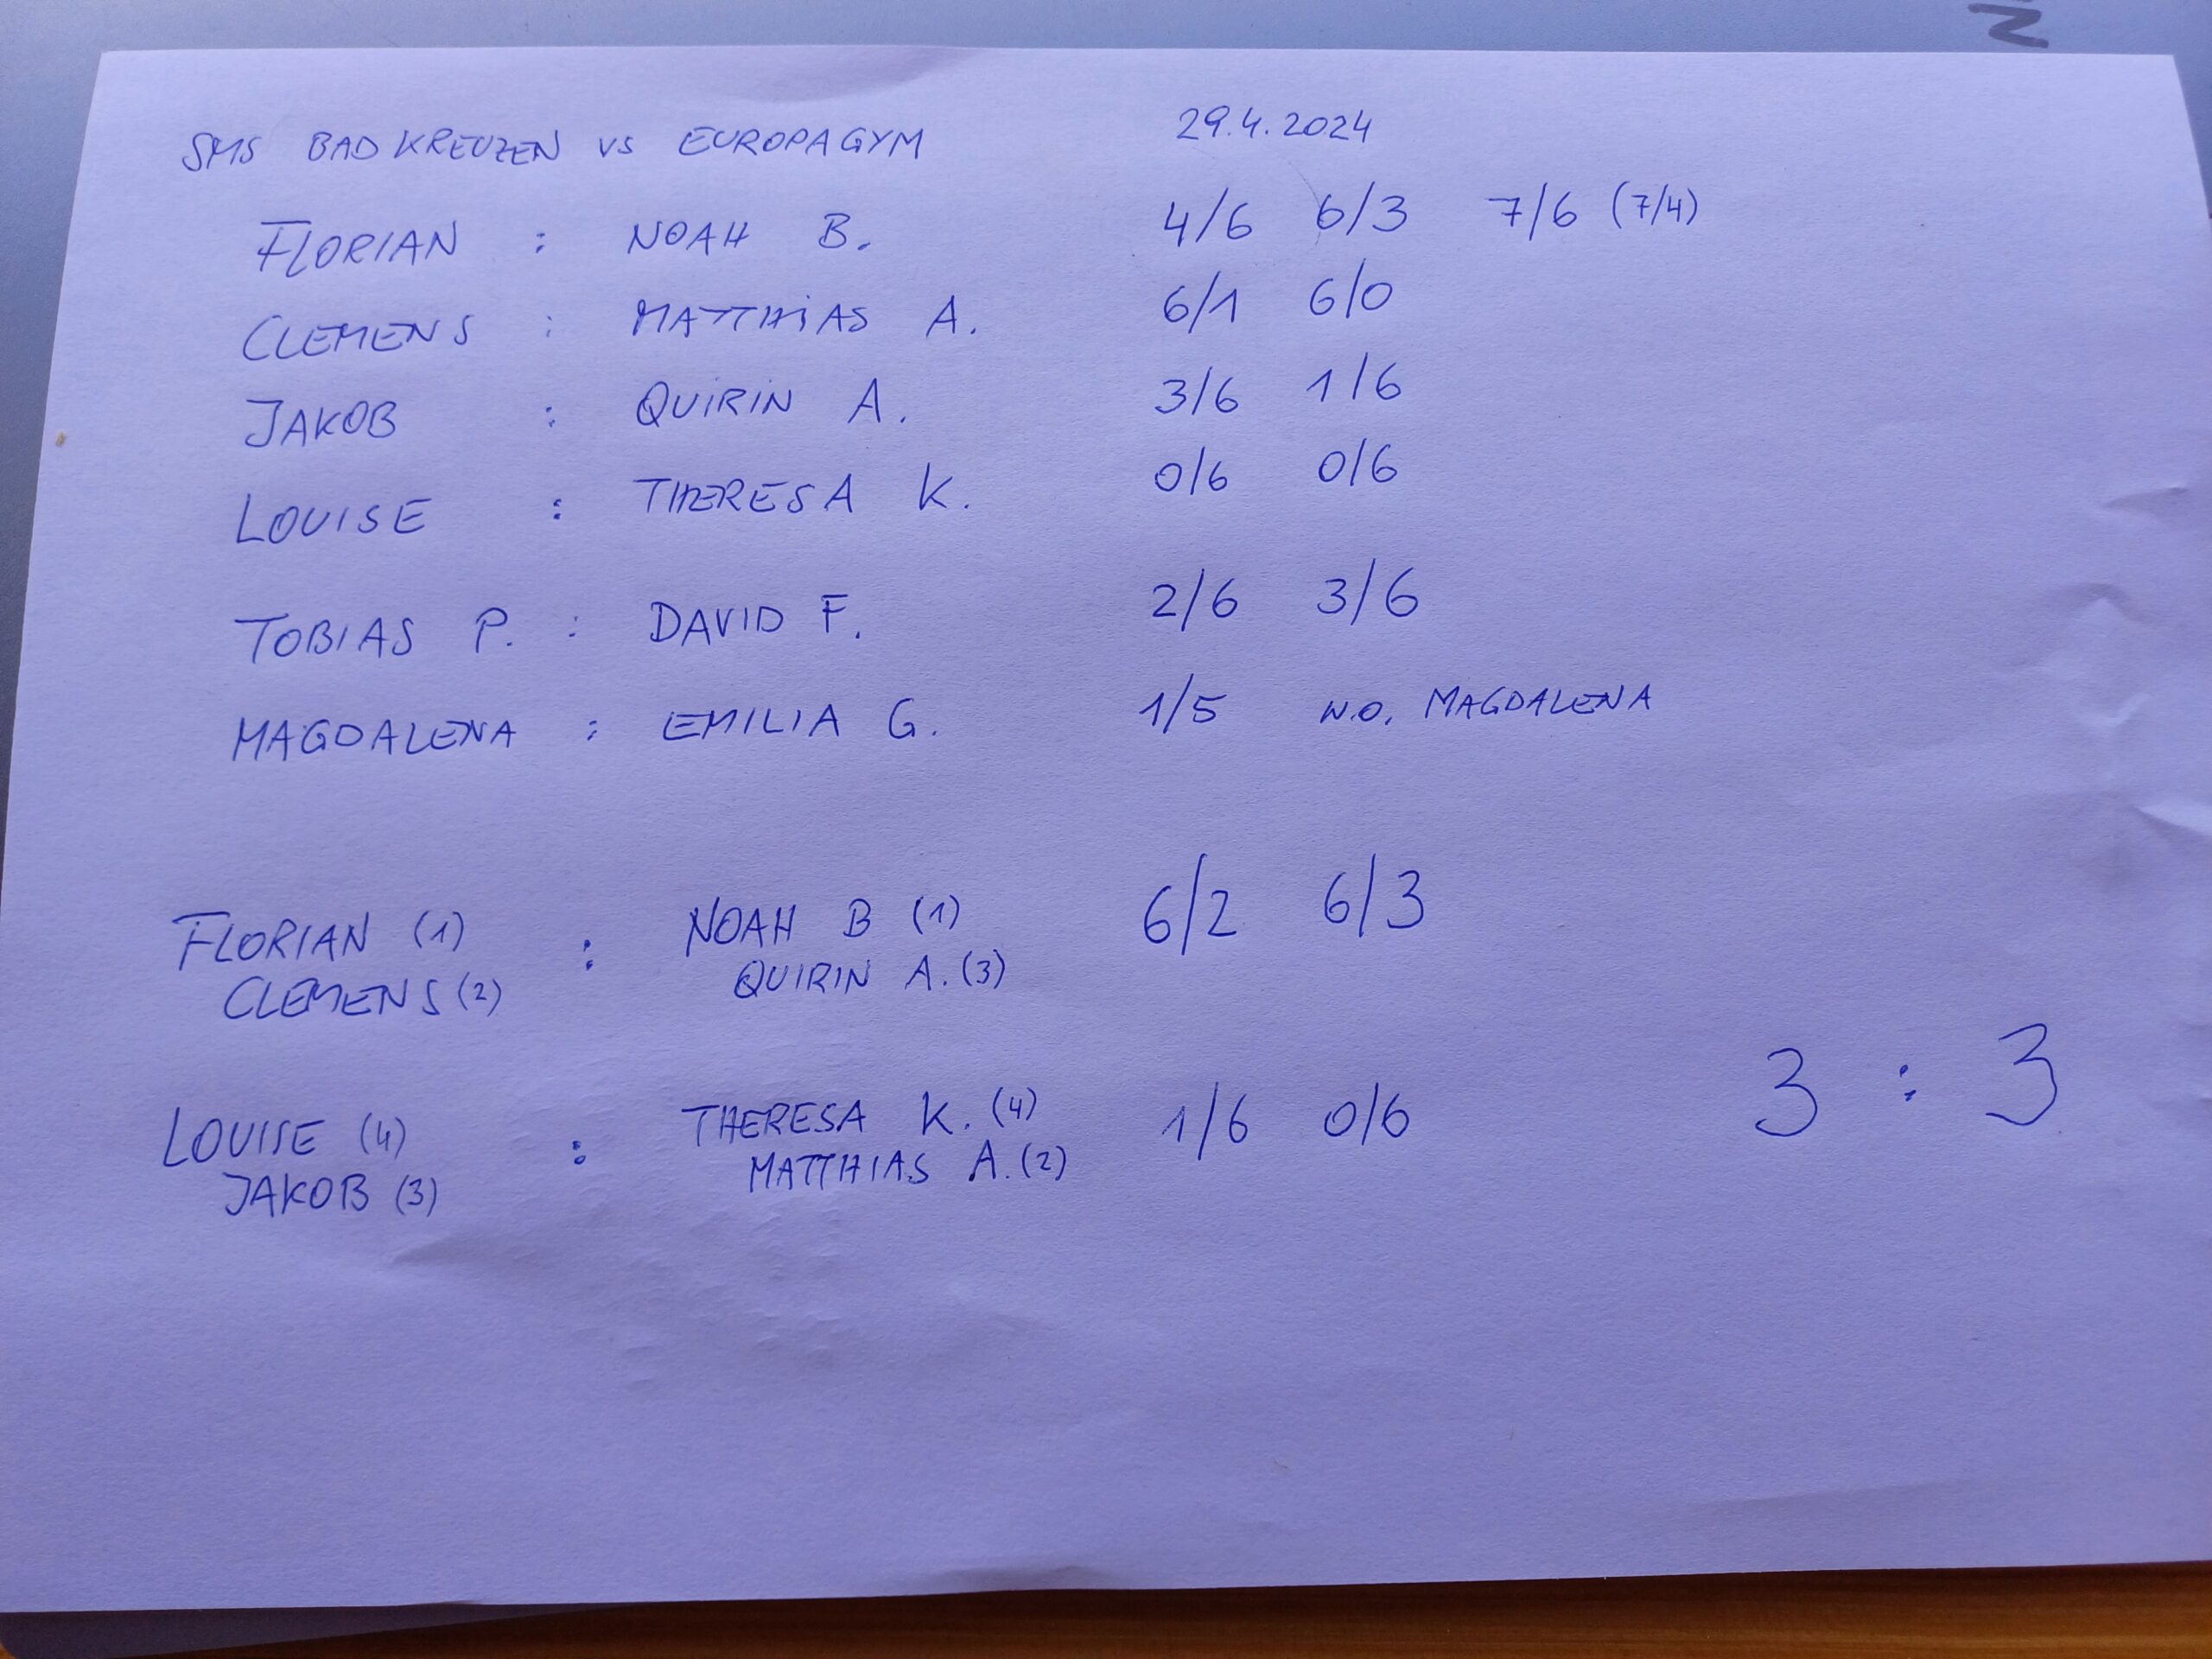 SMS BAD KREUZEN VS EUROPAGYM 29.4.2024
FLORIAN : NOAH B. 4/6 6/3 7/6 (7/4)
CLEMENS : MATTHIAS A. 6/1 6/0
JAKOB : QUIRIN A. 3/6 1/6
LOUISE : THERESA K. 0/6 0/6
TOBIAS P. : DAVID F. 2/6 3/6
MAGDALENA : EMILIA G. 1/5 w.o. MAGDALENA
FLORIAN (1) : NOAH B (1) 6/2 6/3
CLEMENS (2) QUIRIN A. (3)
LOUISE (4) : THERESA K. (4) 1/6 0/6 3 : 3
JAKOB (3) MATTHIAS A. (2)